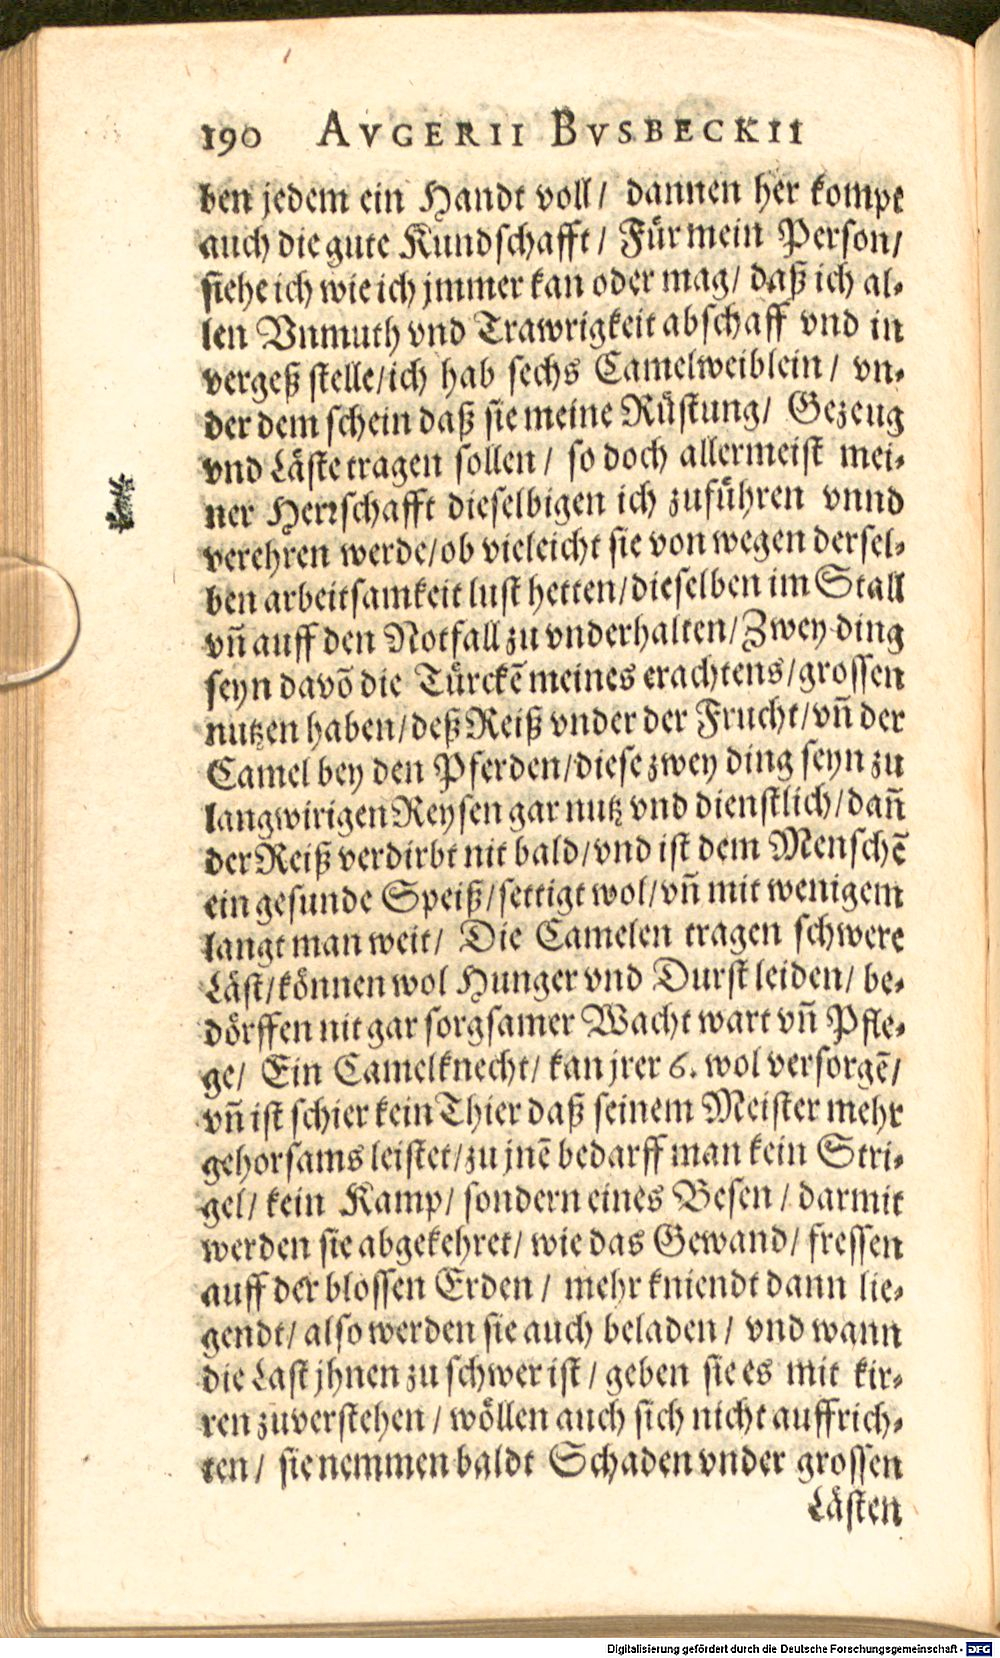 190 AVGERII BVSBECKII
ben jedem ein Handt voll/ dannen her kompt
auch die gute Kundschafft/ Für mein Person/
siehe ich wie ich jmmer kan oder mag/ daß ich al-
len Vnmuth vnd Trawrigkeit abschaff vnd in
vergeß stelle/ich hab sechs Camelweiblein/ vn-
der dem schein daß sie meine Rüstung/ Gezeug
vnd Läste tragen sollen/ so doch allermeist mei-
ner Herrschafft dieselbigen ich zuführen vnnd
verehren werde/ob vieleicht sie von wegen dersel-
ben arbeitsamkeit lust hetten/dieselben im Stall
vñ auff den Notfall zu vnderhalten/Zwey ding
seyn davõ die Türckẽ meines erachtens/grossen
nutzen haben/deß Reiß vnder der Frucht/vñ der
Camel bey den Pferden/diese zwey ding seyn zu
langwirigen Reysen gar nutz vnd dienstlich/dañ
der Reiß verdirbt nit bald/vnd ist dem Menschẽ
ein gesunde Speiß/settigt wol/vñ mit wenigem
langt man weit/ Die Camelen tragen schwere
Läst/können wol Hunger vnd Durst leiden/ be-
dörffen nit gar sorgsamer Wacht wart vñ Pfle-
ge/ Ein Camelknecht/ kan jrer 6. wol versorgẽ/
vñ ist schier kein Thier daß seinem Meister mehr
gehorsams leistet/zu jnẽ bedarff man kein Stri-
gel/ kein Kamp/ sondern eines Besen/ darmit
werden sie abgekehret/ wie das Gewand/ fressen
auff der blossen Erden/ mehr kniendt dann lie-
gendt/ also werden sie auch beladen/ vnd wann
die Last jhnen zu schwer ist/ geben sie es mit kir-
ren zuverstehen/ wöllen auch sich nicht auffrich-
ten/ sie nemmen baldt Schaden vnder grossen
Lästen
Digitalisierung gefördert durch die Deutsche Forschungsgemeinschaft - DFG